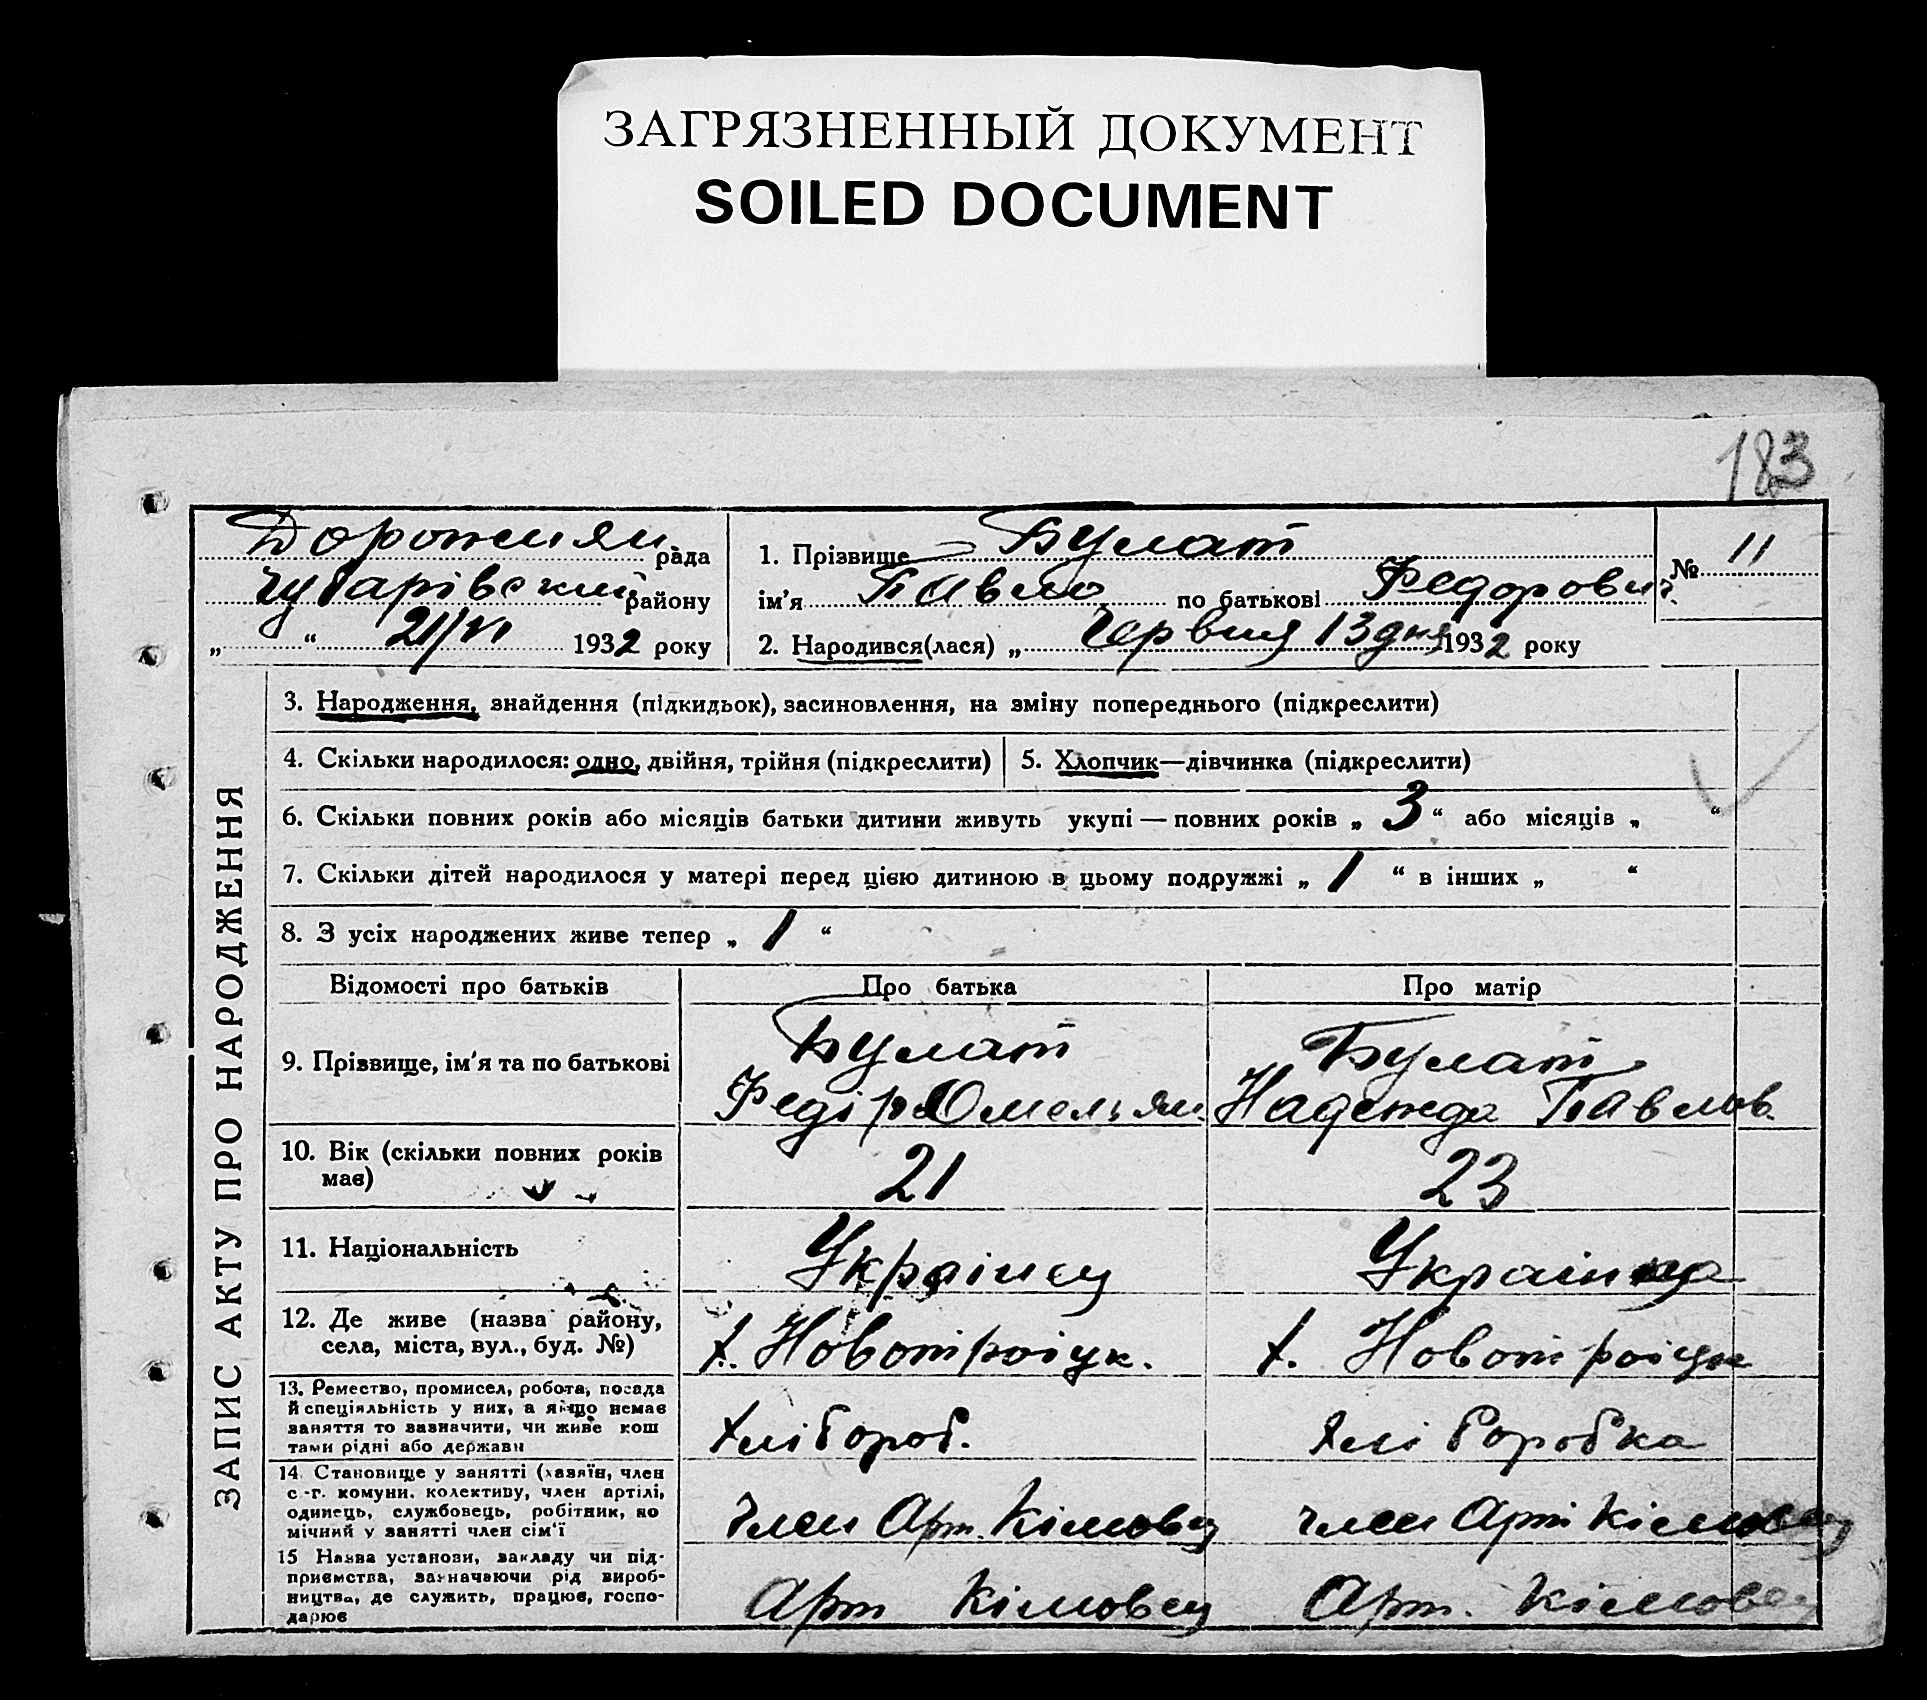 ЗАГРЯЗНЕННЫЙ ДОКУМЕНТ
SOILED DOCUMENT
183
ЗАПИС АКТУ ПРО НАРОДЖЕННЯ
Дорожнян. рада
Чубарівський району
„ “ 21/VI 1932 року
1. Прізвище Булат
ім’я Павло по батькові Федорович.
2. Народився(лася) „ Червня 13 дня 1932 року
№ 11
3. Народження, знайдення (підкидьок), засиновлення, на зміну попереднього (підкреслити)
4. Скільки народилося: одно, двійня, трійня (підкреслити) 5. Хлопчик—дівчинка (підкреслити)
6. Скільки повних років або місяців батьки дитини живуть укупі — повних років „ 3 “ або місяців „ “
7. Скільки дітей народилося у матері перед цією дитиною в цьому подружжі „ 1 “ в інших „ “
8. З усіх народжених живе тепер „ 1 “
Відомості про батьків Про батька Про матір
9. Прізвище, ім’я та по батькові
Булат
Федір Омельян.
Булат
Надежда Павлов.
10. Вік (скільки повних років
має)
21 23
11. Національність Українец Українца
12. Де живе (назва району,
села, міста, вул., буд. №)
х. Новотроіцк. х. Новотроіцк
13. Ремество, промисел, робота, посада
й спеціяльність у них, а якщо немає
заняття то зазначити, чи живе кош
тами рідні або держави
Хлібороб. Хліборобка
14. Становище у занятті (хазяїн, член
с.-г. комуни, колективу, член артілі,
одинець, службовець, робітник, по
мічний у занятті член сім’ї
член Арт. Кімовец член Арт Кімовец
15 Назва установи, закладу чи під-
приємства, зазначаючи рід вироб-
ництва, де служить, працює, госпо-
дарює
Арт Кімовец Арт. Кімовец